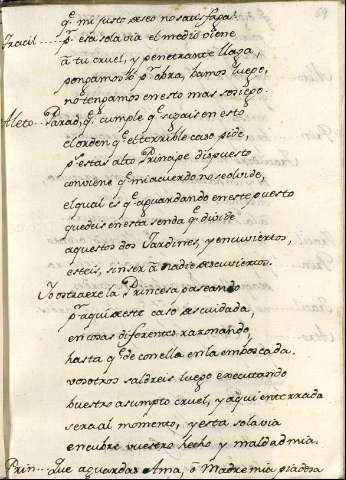 69
q.e mi justo deseo no satisfaga?
Tracil..... P.r esa sola via el medio viene
â tu cruel, y penetrante llaga,
pongamos lo p.r obra, vamos luego,
no tengamos en esto mas sosiego.
Aleto... Parad, q.e cumple q.e sigais en esto
el orden q.e el terrible caso pide,
p.r estas alto Principe dispuesto
conviene q.e mi acuerdo no se olvide,
el qual es q.e aguardando en este puesto
quedeis en esta senda q.e divide
aquestos dos Jardines, y encuviertos,
esteis, sin ser â nadie descuviertos.
Yo estraere la Princesa paseando
p.r aqui de este caso descuidada,
en cosas diferentes razonando,
hasta q.e de con ella en la emboscada.
vosotros saldreis luego executando
vuestro asumpto cruel, y aqui enterrada
sera al momento, y esta sola via
encubre vuestro hecho y maldad mia.
Prin... Que aguardas Ama, ô Madre mia piadosa